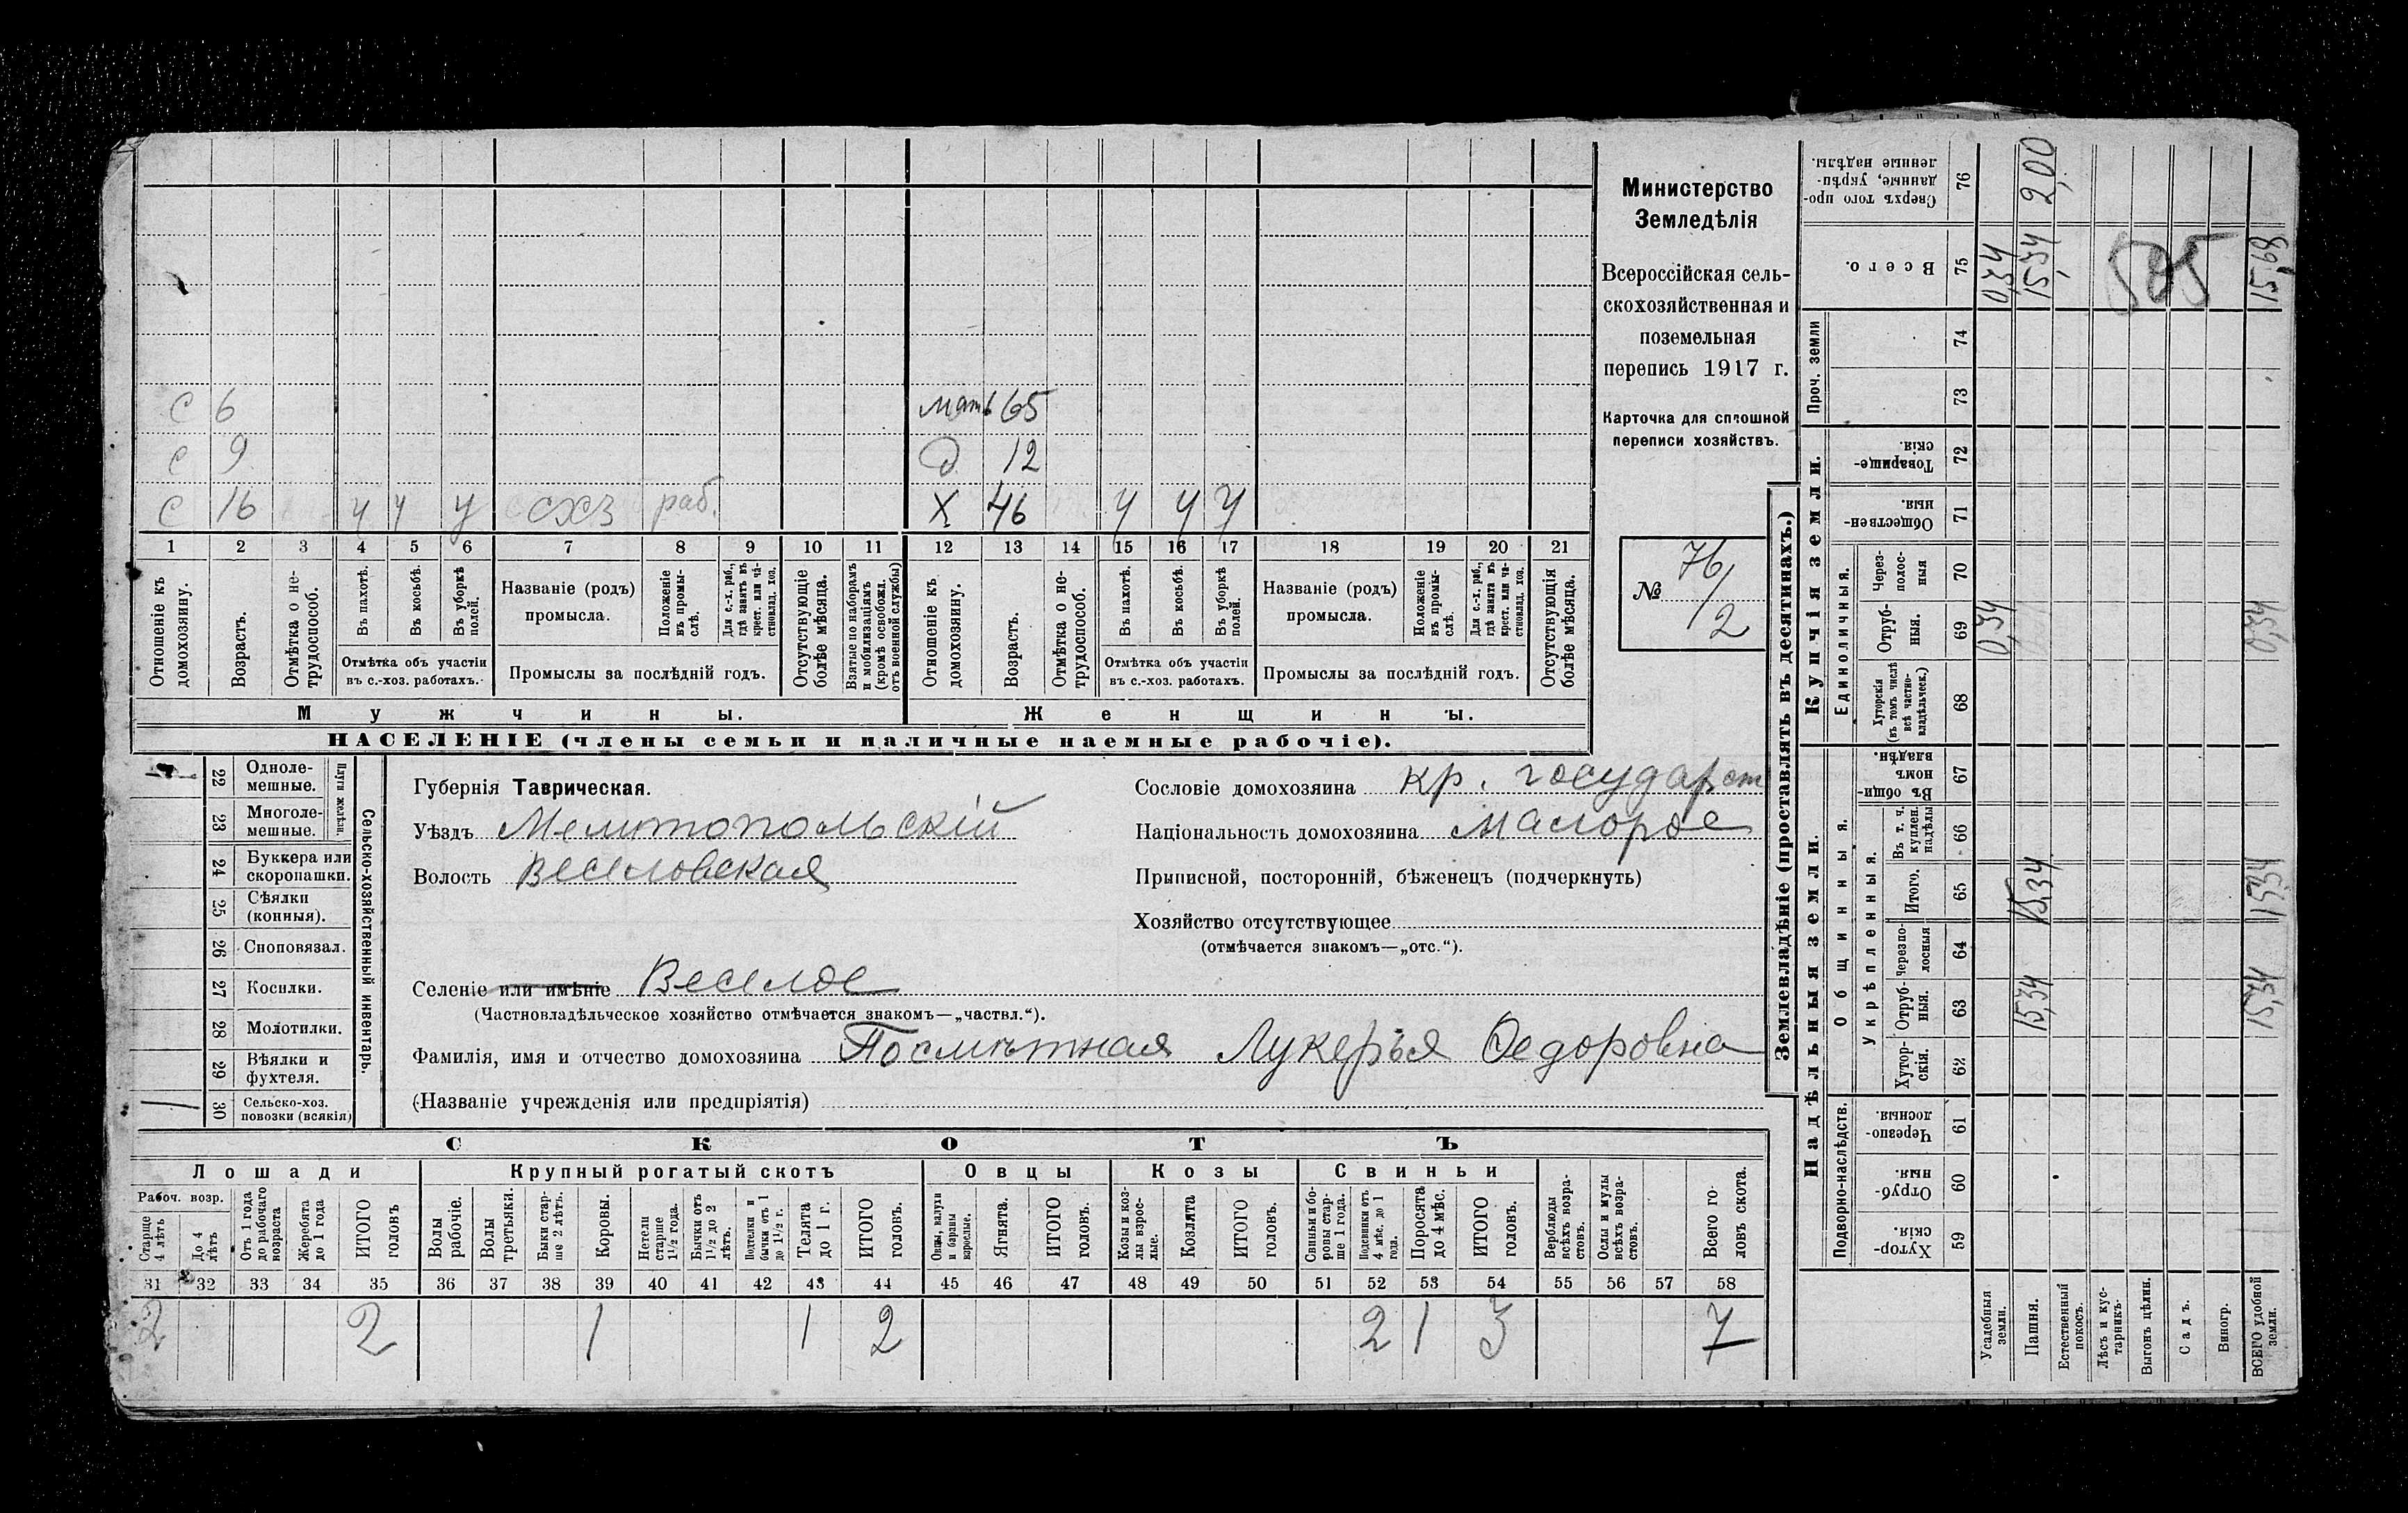 Министерство
Земледѣлія
Всероссійская сель-
скохозяйственная и
поземельная
перепись 1917 г.
Карточка для сплошной
переписи хозяйствъ.
№ 76/2
с 6 мать 65
с 9 д 12
с 16 у у у схз раб. Х 46 у у у
1 2 3 4 5 6 7 8 9 10 11 12 13 14 15 16 17 18 19 20 21
Отношеніе къ домохозяину.
Возрастъ.
Отмѣтка о не-трудоспособ.
Въ пахотѣ.
Въ косьбѣ.
Въ уборкѣ полей.
Отмѣтка объ участіи
въ с.-хоз. работахъ.
Названіе (родъ)
промысла.
Положеніе въ промы-слѣ.
Для с.-х. раб., гдѣ занятъ въ крест. или ча-стновлад. хоз.
Промыслы за послѣдній годъ.
Отсутствующіе болѣе мѣсяца.
Взятые по наборамъ и мобилизаціямъ (кромѣ освобожд. отъ военной службы)
Отношеніе къ домохозяину.
Возрастъ.
Отмѣтка о не-трудоспособ.
Въ пахотѣ.
Въ косьбѣ.
Въ уборкѣ полей.
Отмѣтка объ участіи
въ с.-хоз. работахъ.
Названіе (родъ)
промысла.
Положеніе въ промы-слѣ.
Для с.-х. раб., гдѣ занята въ крест. или ча-стновлад. хоз.
Промыслы за послѣдній годъ.
Отсутствующія болѣе мѣсяца.
Мужчины. Женщины.
НАСЕЛЕНІЕ (члены семьи и наличные наемные рабочіе).
22 Одноле-мешные.
23 Многоле-мешные.
Плуги желѣзн.
24 Буккера или скоропашки.
25 Сѣялки (конныя).
26 Сноповязал.
27 Косилки.
28 Молотилки.
29 Вѣялки и фухтеля.
1 30 Сельско-хоз. повозки (всякія)
Сельско-хозяйственный инвентарь.
Губернія Таврическая.
Уѣздъ Мелитопольскій
Волость Веселовская
Сословіе домохозяина кр. государст
Національность домохозяина малорос
Приписной, посторонній, бѣженецъ (подчеркнуть)
Хозяйство отсутствующее
(отмѣчается знакомъ—„отс.“).
Селеніе или имѣніе Веселое
(Частновладѣльческое хозяйство отмѣчается знакомъ—„частвл.“).
Фамилія, имя и отчество домохозяина Посмѣтная Лукерья Ѳедоровна
(Названіе учрежденія или предпріятія)
СКОТЪ
Лошади Крупный рогатый скотъ Овцы Козы Свиньи
Рабоч. возр.
Старше 4 лѣтъ
До 4 лѣтъ
Отъ 1 года до рабочаго возраста
Жеребята до 1 года
ИТОГО головъ
Волы рабочіе.
Волы третьяки.
Быки стар-ше 2 лѣтъ.
Коровы.
Нетели старше 1½ года.
Бычки отъ 1½ до 2 лѣтъ.
Подтелки и бычки отъ 1 до 1½ г.
Телята до 1 г.
ИТОГО головъ.
Овцы, валухи и бараны взрослые.
Ягнята.
ИТОГО головъ.
Козы и коз-лы взрос-лые.
Козлята
ИТОГО головъ.
Свиньи и бо-ровы стар-ше 1 года.
Подсвинки отъ 4 мѣс. до 1 года.
Поросята до 4 мѣс.
ИТОГО головъ.
Верблюды всѣхъ возра-стовъ.
Ослы и мулы всѣхъ возра-стовъ.
Всего го-ловъ скота.
31 32 33 34 35 36 37 38 39 40 41 42 43 44 45 46 47 48 49 50 51 52 53 54 55 56 57 58
2 2 1 1 2 2 1 3 7
Землевладѣніе (проставлять въ десятинахъ.)
Надѣльныя земли.
Купчія земли.
Проч. земли
Подворно-наслѣдств.
Общинныя.
Укрѣпленныя.
Единоличныя.
Хутор-скія. 59
Отруб-ныя. 60
Черезпо-лосныя. 61
Хутор-скія. 62
Отруб-ныя. 63 15,34 15,34
Черезпо-лосныя 64
Итого. 65 15,34 15,34
Въ т. ч. куплен. надѣлы 66
Въ общин-номъ владѣн. 67
Хуторскія (въ томъ числѣ всѣ частно-владѣльческ.) 68
Отруб-ныя. 69 0,34 0,34
Через-полос-ныя 70
Обществен-ныя. 71
Товарище-скія. 72
73
74
Всего. 75 0,34 15,34 15,68
Сверхъ того про-данные, укрѣп-ленные надѣлы. 76 2,00
505
Усадебныя земли.
Пашня.
Естественный покосъ.
Лѣсъ и кус-тарникъ.
Выгонъ цѣлин.
Садъ.
Виногр.
ВСЕГО удобной земли.